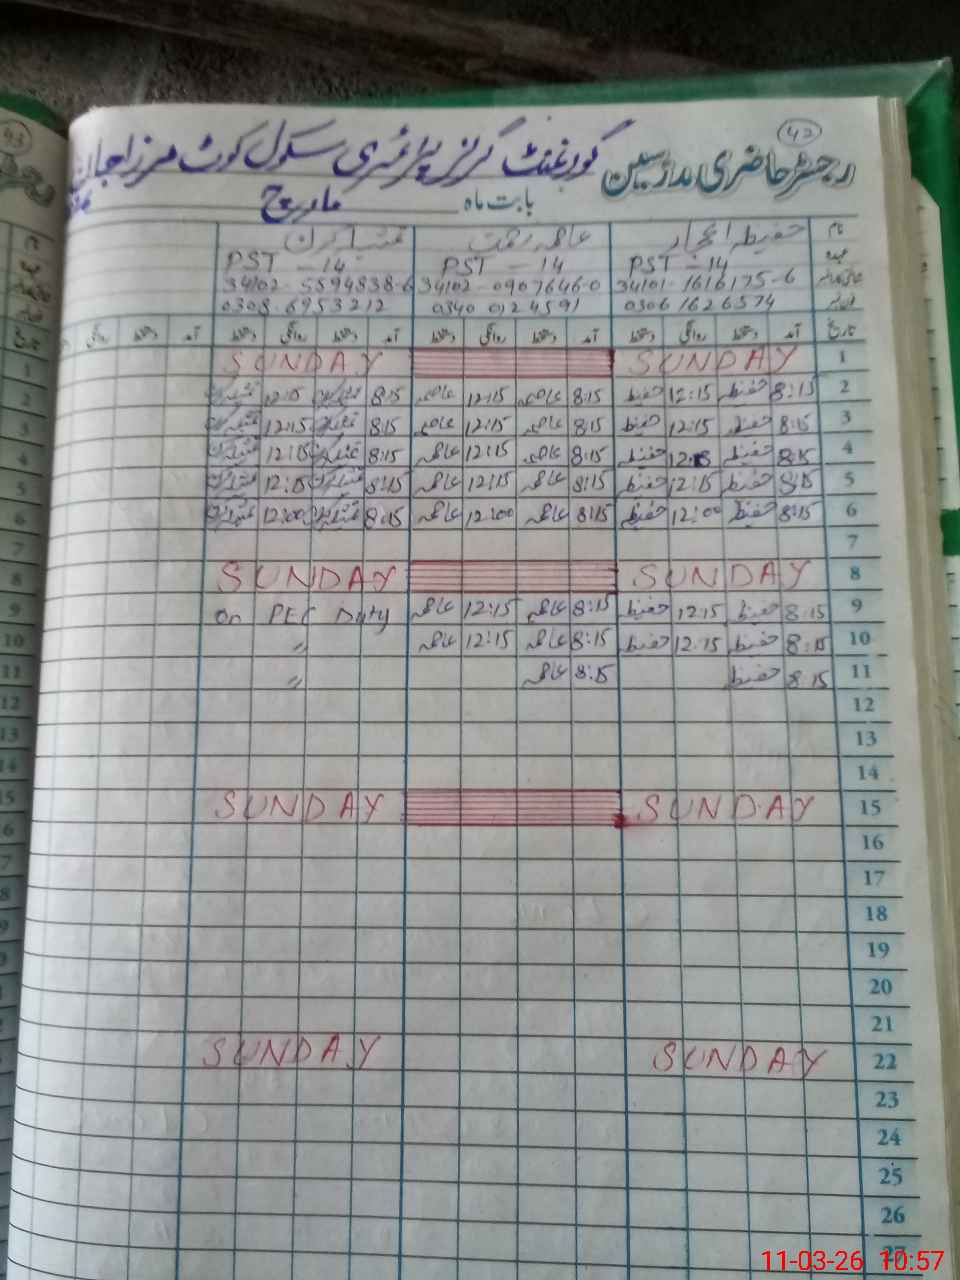 42
رجسٹر حاضری مدرسین گورنمنٹ گرلز پرائمری سکول کوٹ مرزا جان
بابت ماہ مارچ
نام حفیظہ اعجاز عاصمہ رحمت
عہدہ PST - 14 PST - 14 PST - 14
34101-1616175-6 34102-0907646-0 34102-5594838-6
0306 1626574 0340 0124591 0308-6953212
تاریخ آمد دستخط روانگی دستخط آمد دستخط روانگی دستخط آمد دستخط روانگی دستخط آمد دستخط روانگی
1 SUNDAY SUNDAY
2 8:15 حفیظہ 12:15 حفیظہ 8:15 عاصمہ 12:15 عاصمہ 8:15 12:15
3 8:15 حفیظہ 12:15 حفیظہ 8:15 عاصمہ 12:15 عاصمہ 8:15 12:15
4 8:15 حفیظہ 12:15 حفیظہ 8:15 عاصمہ 12:15 عاصمہ 8:15 12:15
5 8:15 حفیظہ 12:15 حفیظہ 8:15 عاصمہ 12:15 عاصمہ 8:15 12:15
6 8:15 حفیظہ 12:00 حفیظہ 8:15 عاصمہ 12:00 عاصمہ 8:15 12:00
7
8 SUNDAY SUNDAY
9 8:15 حفیظہ 12:15 حفیظہ 8:15 عاصمہ 12:15 عاصمہ On PEC Duty
10 8:15 حفیظہ 12:15 حفیظہ 8:15 عاصمہ 12:15 عاصمہ "
11 8:15 حفیظہ 8:15 عاصمہ "
12
13
14
15 SUNDAY SUNDAY
16
17
18
19
20
21
22 SUNDAY SUNDAY
23
24
25
26
27
11-03-26 10:57